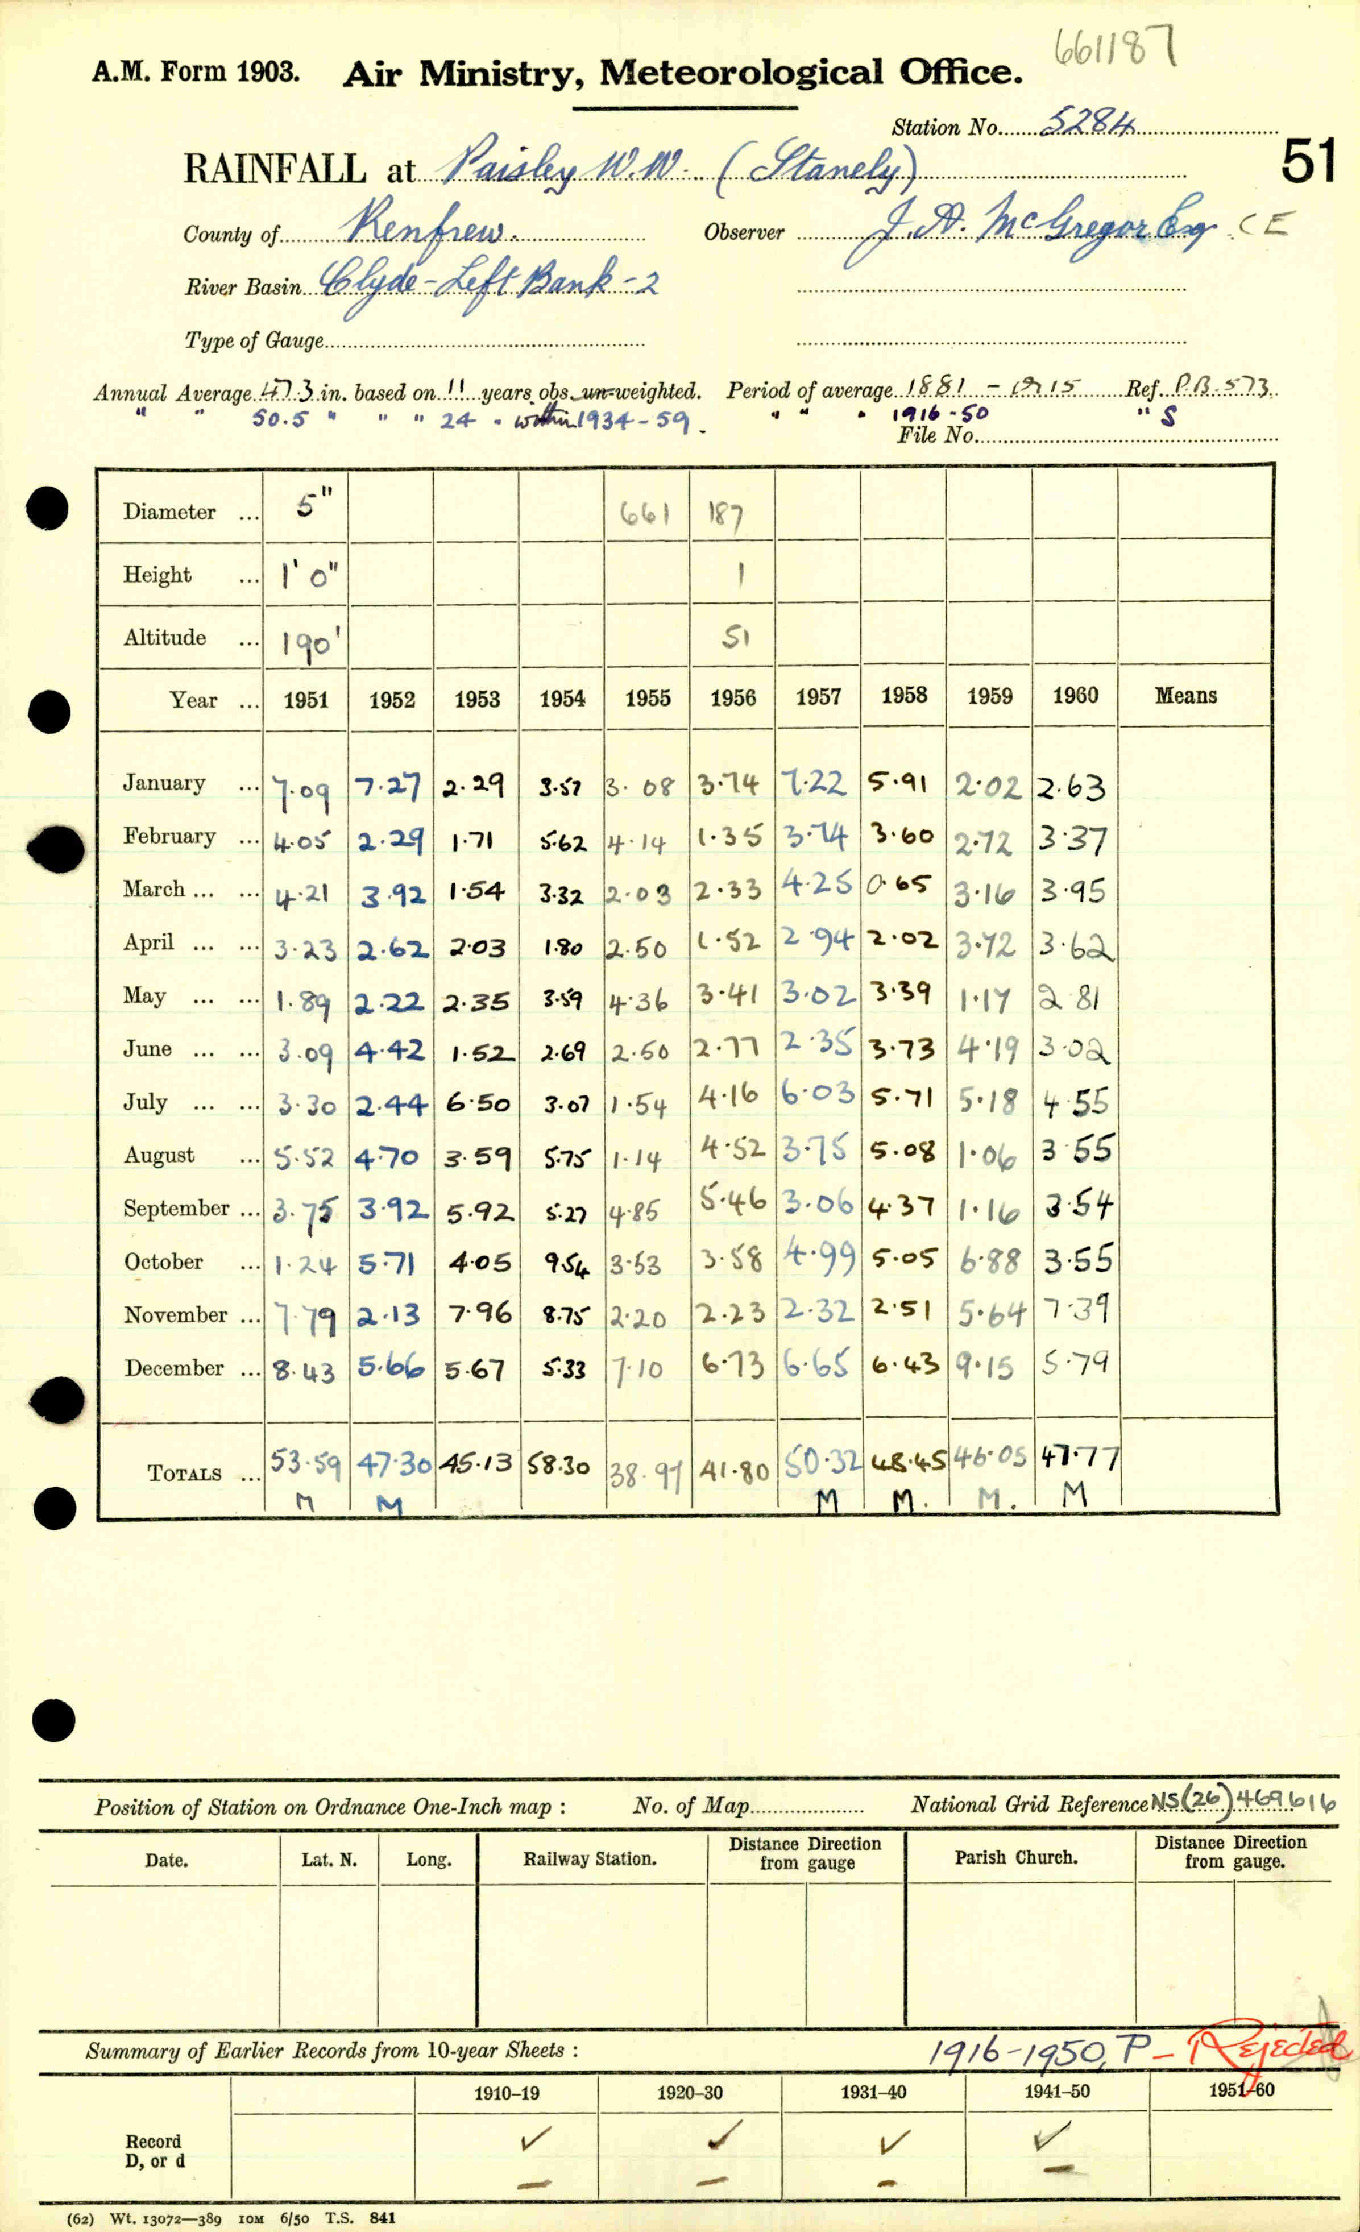 661187
A.M. Form 1903. Air Ministry, Meteorological Office.
Station No. 5284
51
RAINFALL at Paisley W.W. (Stanely)
County of Renfrew. Observer J. A. McGregor Esq. C E
River Basin Clyde - Left Bank - 2
Type of Gauge
Annual Average 47.3 in. based on 11 years obs. un-weighted. Period of average 1881 - 1915 Ref. P.B. 573
" " 50.5 " " " 24 " within 1934 - 59. " " " 1916 - 50 " S
File No.
Diameter ... 5" 661 187
Height ... 1' 0" 1
Altitude ... 190' 51
Year ... 1951 1952 1953 1954 1955 1956 1957 1958 1959 1960 Means
January ... 7.09 7.27 2.29 3.57 3.08 3.74 7.22 5.91 2.02 2.63
February ... 4.05 2.29 1.71 5.62 4.14 1.35 3.74 3.60 2.72 3.37
March ... ... 4.21 3.92 1.54 3.32 2.03 2.33 4.25 0.65 3.16 3.95
April ... ... 3.23 2.62 2.03 1.80 2.50 1.52 2.94 2.02 3.72 3.62
May ... ... 1.89 2.22 2.35 3.59 4.36 3.41 3.02 3.39 1.17 2.81
June ... ... 3.09 4.42 1.52 2.69 2.50 2.77 2.35 3.73 4.19 3.02
July ... ... 3.30 2.44 6.50 3.07 1.54 4.16 6.03 5.71 5.18 4.55
August ... 5.52 4.70 3.59 5.75 1.14 4.52 3.75 5.08 1.06 3.55
September ... 3.75 3.92 5.92 5.27 4.85 5.46 3.06 4.37 1.16 3.54
October ... 1.24 5.71 4.05 9.54 3.53 3.58 4.99 5.05 6.88 3.55
November ... 7.79 2.13 7.96 8.75 2.20 2.23 2.32 2.51 5.64 7.39
December ... 8.43 5.66 5.67 5.33 7.10 6.73 6.65 6.43 9.15 5.79
TOTALS ... 53.59 47.30 45.13 58.30 38.97 41.80 50.32 48.45 46.05 47.77
M M M M. M. M
Position of Station on Ordnance One-Inch map : No. of Map National Grid Reference NS (26) 469616
Date. Lat. N. Long. Railway Station. Distance Direction from gauge Parish Church. Distance Direction from gauge.
Summary of Earlier Records from 10-year Sheets : 1916-1950, P - Rejected
1910-19 1920-30 1931-40 1941-50 1951-60
Record ✓ ✓ ✓ ✓
D, or d - - - -
(62) Wt. 13072—389 10M 6/50 T.S. 841